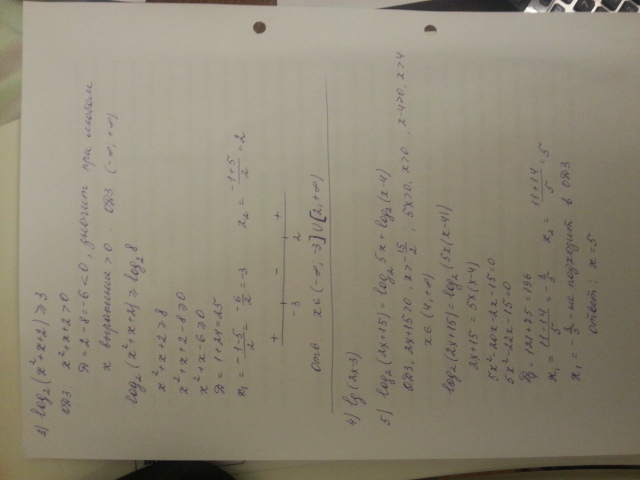 3) log₂(x²+x+2) ≥ 3
ОДЗ x²+x+2>0
D=1-8=-6<0, значит при любом
x выражение >0. ОДЗ (-∞,+∞)
log₂(x²+x+2) ≥ log₂8
x²+x+2≥8
x²+x+2-8≥0
x²+x-6≥0
D=1+24=25
x₁=(-1-5)/2=-6/2=-3 x₂=(-1+5)/2=2
+ - +
-3 2
отв x∈(-∞,-3]∪[2,+∞)
4) lg(2x-3)
5) log₂(2x+15)=log₂5x+log₂(x-4)
ОДЗ, 2x+15>0 x>-15/2; 5x>0, x>0, x-4>0, x>4
x∈(4,+∞)
log₂(2x+15)=log₂(5x(x-4))
2x+15=5x(x-4)
5x²-20x-2x-15=0
5x²-22x-15=0
D₁=121+75=196
x₁=(11-14)/5=-3/5 x₂=(11+14)/5=5
x₁=-3/5-не подходит в ОДЗ
ответ: x=5